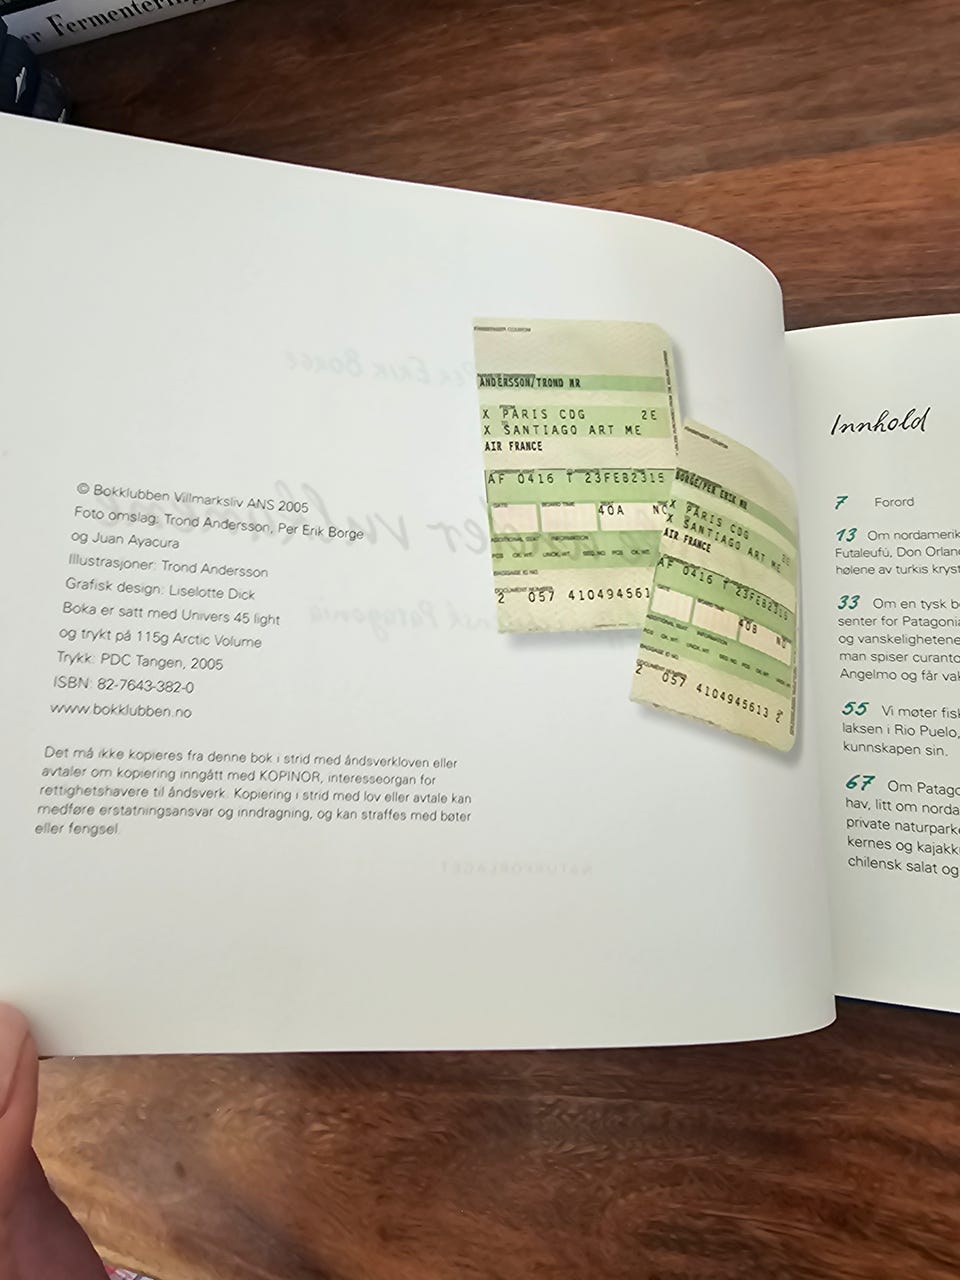 Fermentering
© Bokklubben Villmarksliv ANS 2005
Foto omslag: Trond Andersson, Per Erik Borge
og Juan Ayacura
Illustrasjoner: Trond Andersson
Grafisk design: Liselotte Dick
Boka er satt med Univers 45 light
og trykt på 115g Arctic Volume
Trykk: PDC Tangen, 2005
ISBN: 82-7643-382-0
www.bokklubben.no
Det må ikke kopieres fra denne bok i strid med åndsverkloven eller
avtaler om kopiering inngått med KOPINOR, interesseorgan for
rettighetshavere til åndsverk. Kopiering i strid med lov eller avtale kan
medføre erstatningsansvar og inndragning, og kan straffes med bøter
eller fengsel.
PASSENGER COUPON
ANDERSSON/TROND MR
X PARIS CDG 2E
X SANTIAGO ART ME
AIR FRANCE
AF 0416 T 23FEB2315
40A NO
ADDITIONAL SEAT INFORMATION
DOCUMENT NUMBER
2 057 410494561
BORGE/PER ERIK MR
X PARIS CDG 2E
X SANTIAGO ART ME
AIR FRANCE
AF 0416 T 23FEB2315
BOARD TIME
40B NO
ADDITIONAL SEAT INFORMATION
BAGGAGE ID NO.
DOCUMENT NUMBER
2 057 4104945613 2
Innhold
7 Forord
13 Om nordamerik
Futaleufú, Don Orland
hølene av turkis kryst
33 Om en tysk b
senter for Patagonia
og vanskelighetene
man spiser curanto
Angelmo og får vak
55 Vi møter fisk
laksen i Rio Puelo,
kunnskapen sin.
67 Om Patago
hav, litt om norda
private naturparke
kernes og kajakk
chilensk salat og